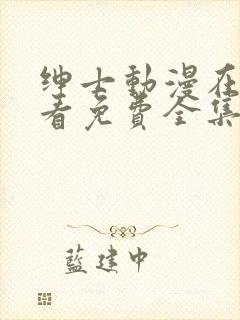 绅士動漫在
看免費全集
藍建中